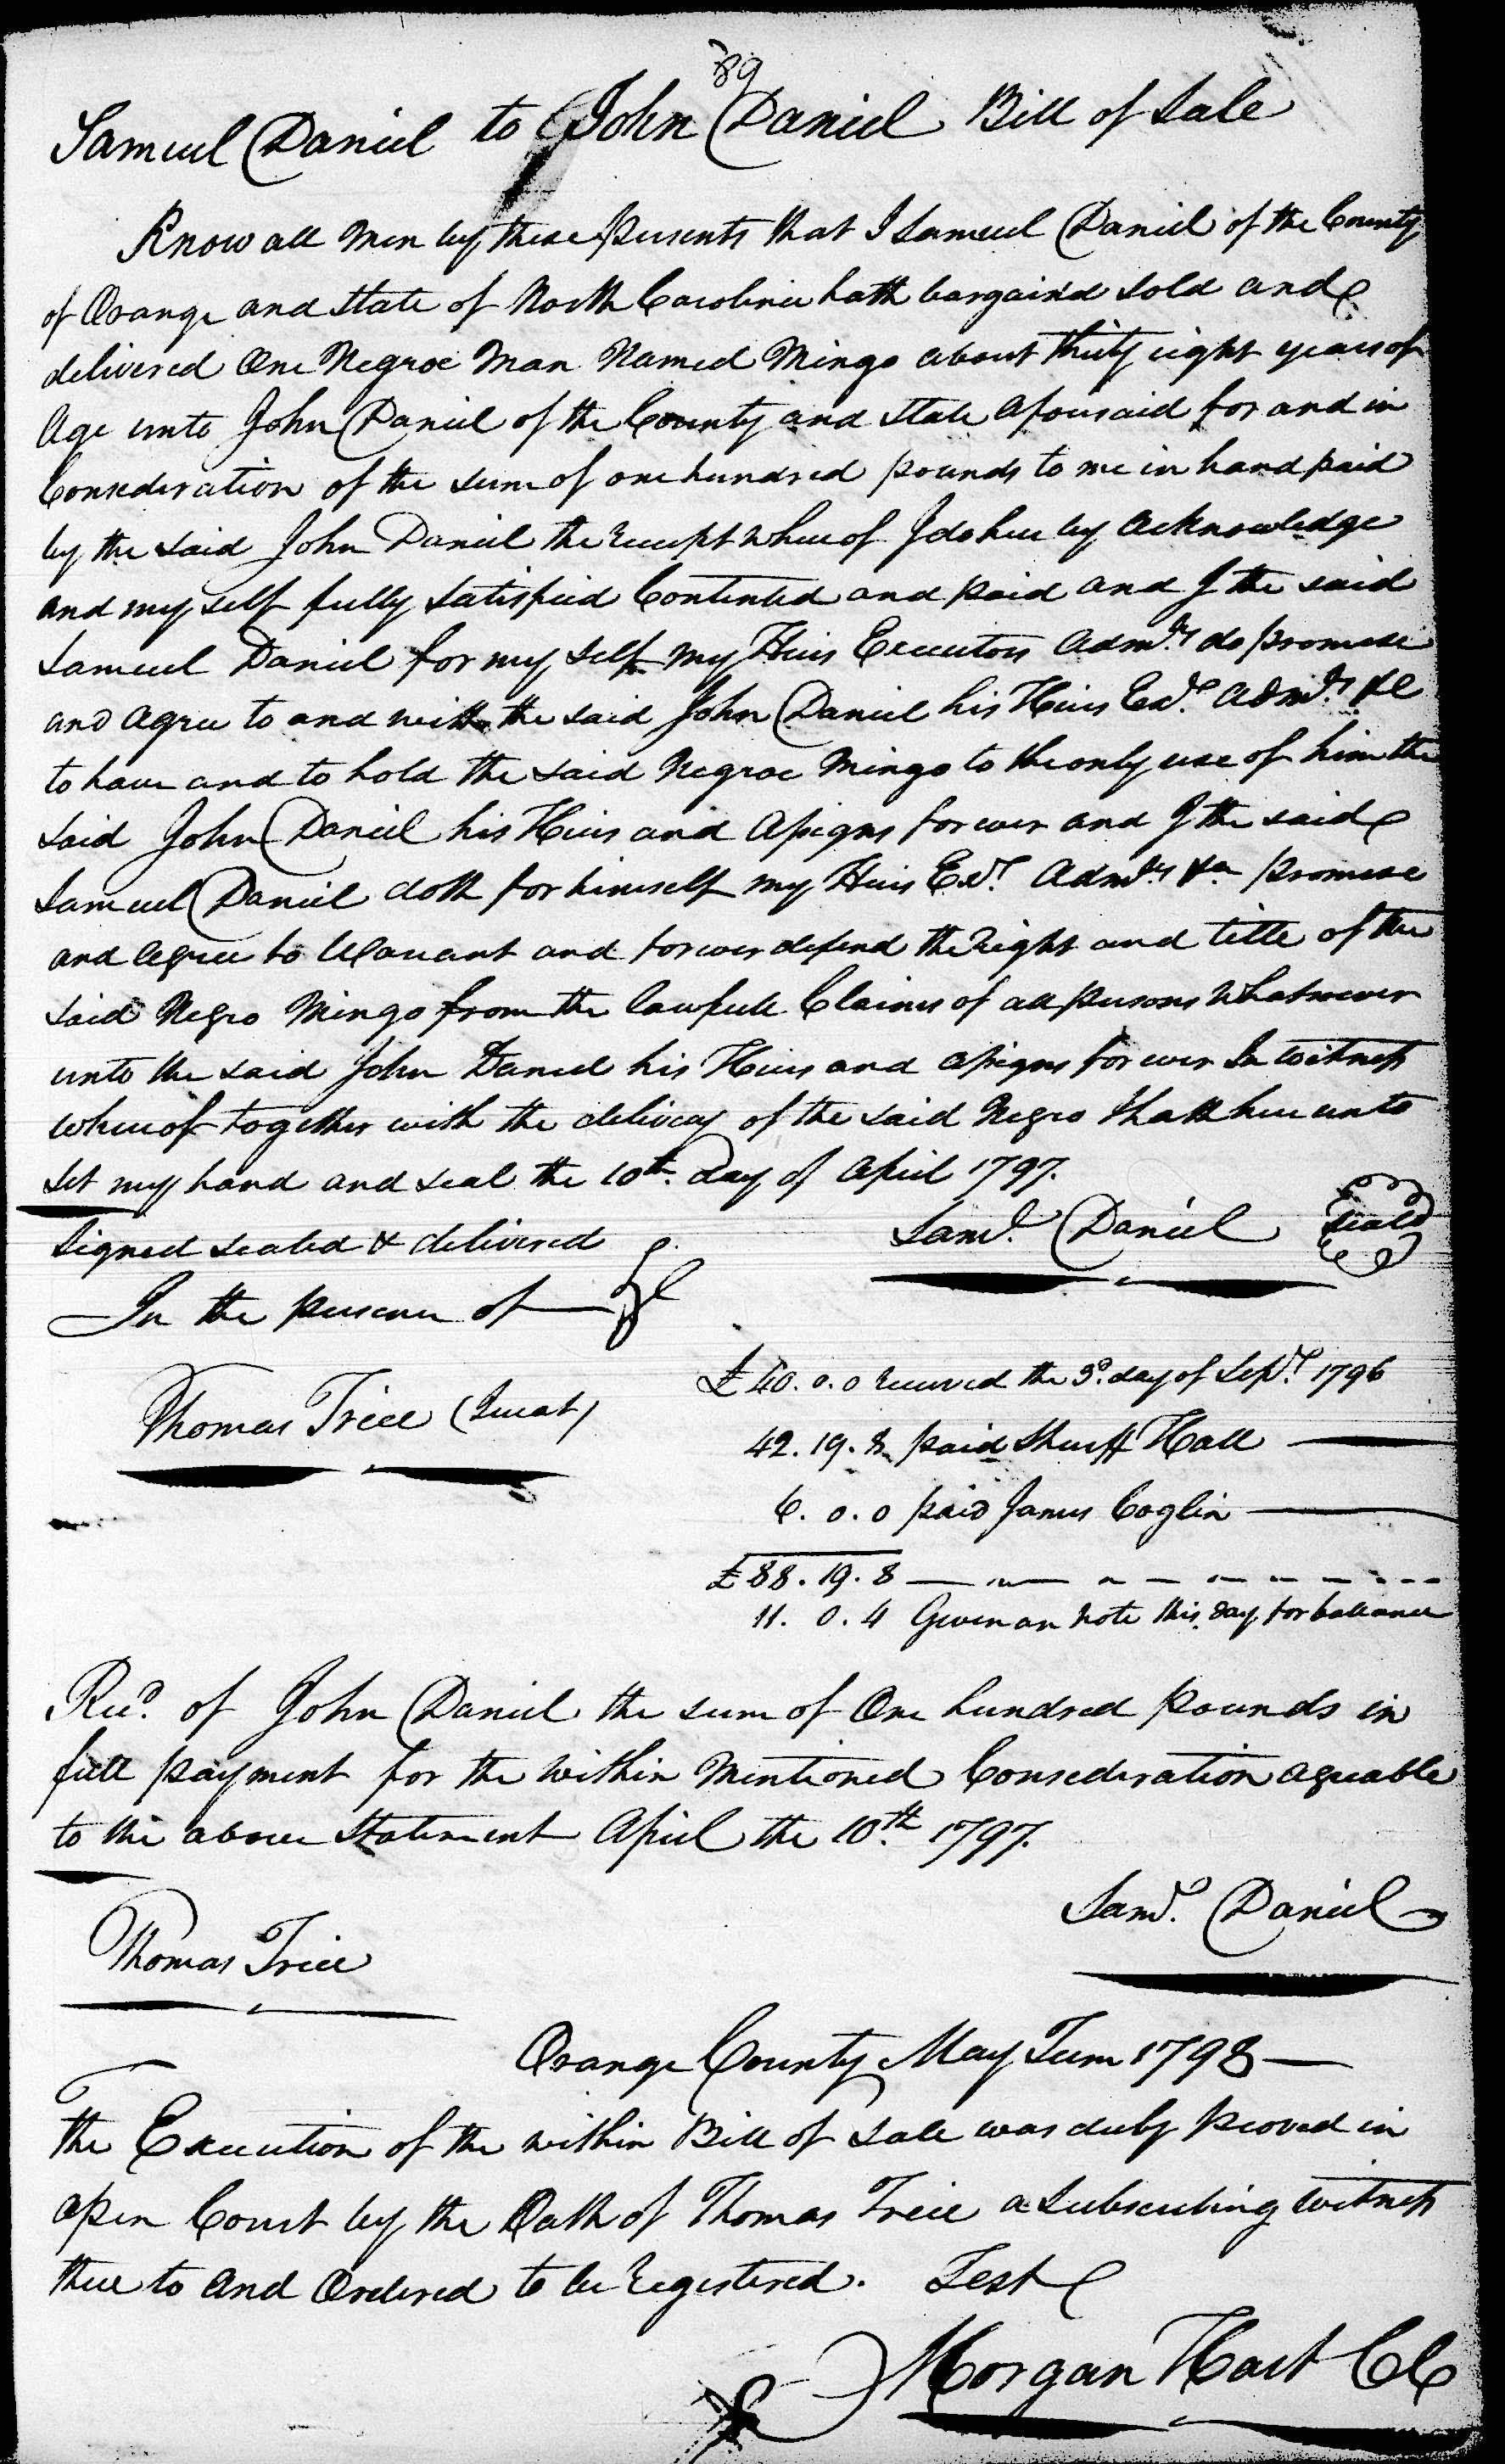 89
Samuel Daniel to John Daniel Bill of Sale
Know all Men by these presents that I Samuel Daniel of the County
of Orange and State of North Carolina hath bargain'd Sold and
delivered One Negroe Man Named Mingo about thirty eight years of
Age unto John Daniel of the County and State aforesaid for and in
Consederation of the sum of one hundred pounds to me in hand paid
by the said John Daniel the receipt whereof I do here by Acknowledge
and my self fully Satisfied Contented and paid and I the said
Samuel Daniel for my self my Heirs Executors Admrs do promise
and agree to and with the said John Daniel his Heirs Exr. Admrs &c
to have and to hold the said Negroe Mingo to the only use of him the
said John Daniel his Heirs and Assigns for ever and I the said
Samuel Daniel doth for himself my Heirs Exr. Admrs &c promise
and agree to Warrant and forever defend the right and title of the
said Negro Mingo from the lawfull Claims of all persons Whatsoever
unto the said John Daniel his Heirs and assigns for ever In witness
whereof together with the delivery of the said Negro I hath here unto
set my hand and seal the 10th. day of April 1797.
Signed sealed & delivered Saml. Daniel Seald
In the presence of
Thomas Trice (Jurat)
£40.0.0 received the 3d. day of Sept. 1796
42.19.8 paid Sheriff Hall
6.0.0 paid James Coglin
£88.19.8
11.0.4 Given an note this day for ballance
Recd. of John Daniel the sum of One hundred pounds in
full payment for the within Mentioned Consederation agreable
to the above Statement April the 10th. 1797.
Saml. Daniel
Thomas Trice
Orange County May Term 1798
The Execution of the within Bill of Sale was duly proved in
open Court by the Oath of Thomas Trice a Subscribing witness
there to and Ordered to be registered. Test
Morgan Hart CC